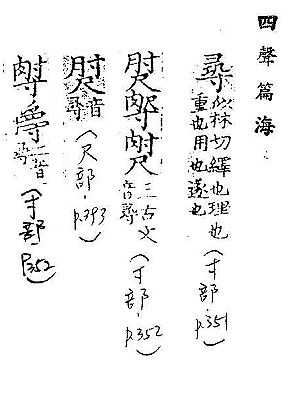 四聲篇海
尋 似林切繹也理也
重也用也遂也
(寸部.p.351)
三古文
音尋
(寸部.p.352)
音
尋
(尺部.p.393)
二音
尋
(寸部 p.352)